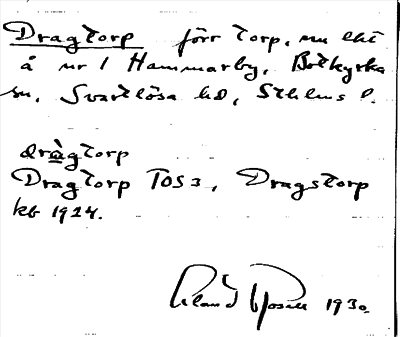 Dragtorp förr torp, nu lht
å nr 1 Hammarby, Botkyrka
sn, Svartlösa hd, Sthlms l.
dràgtorp
Dragtorp TOS 3, Dragstorp
kb 1924.
1930.